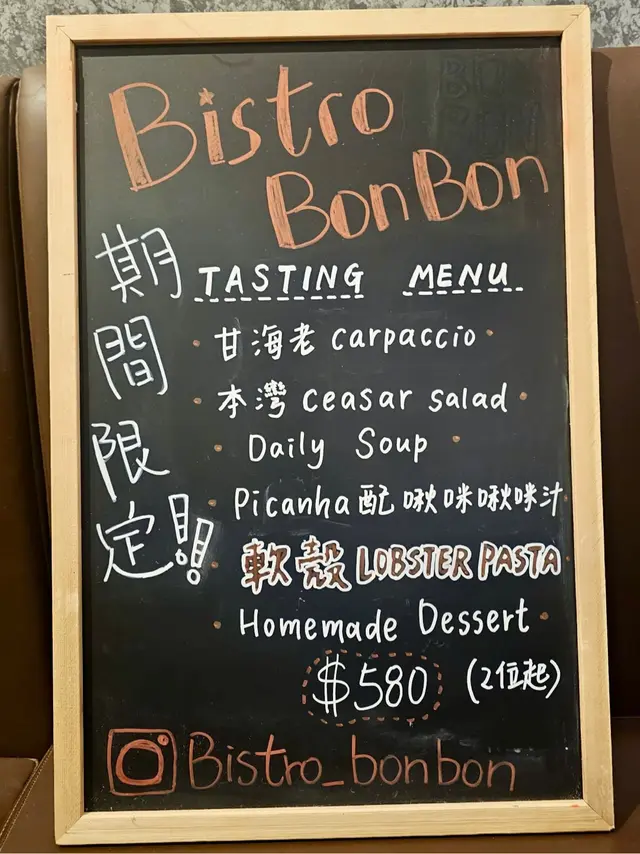 Bistro
BonBon
期間限定!!
TASTING MENU
甘海老 carpaccio
本灣 ceasar salad
Daily Soup
Picanha 配 啾咪啾咪汁
軟殼 LOBSTER PASTA
Homemade Dessert
$580 (2位起)
Bistro_bonbon